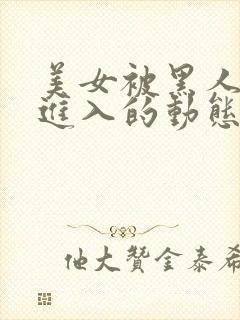 美女被黑人
進入的動態
他大贊金泰希